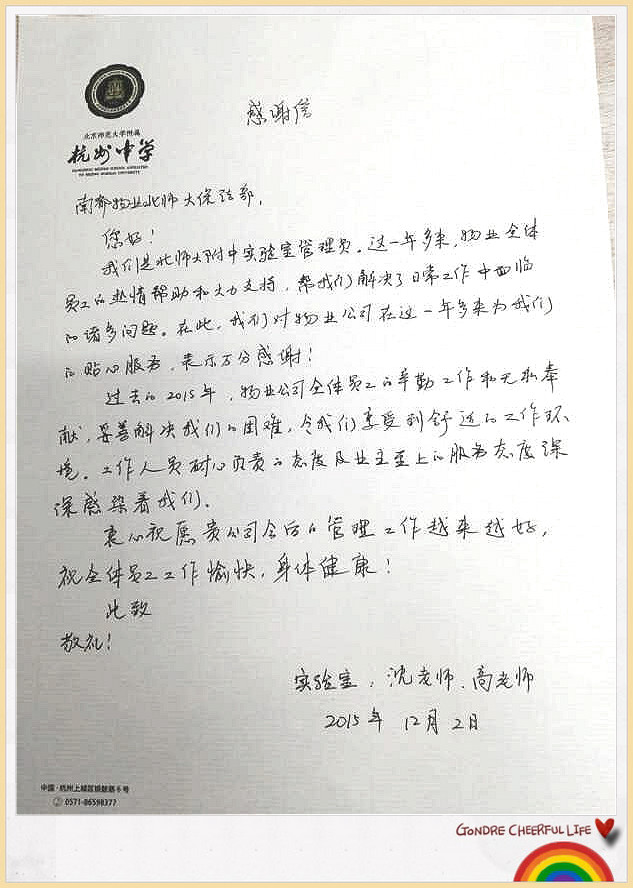 感谢信
北京师范大学附属
杭州中学
南都物业北师大保洁部，
您好！
我们是北师大附中实验室管理员。这一年多来，物业全体
员工的热情帮助和大力支持，帮我们解决了日常工作中面临
的诸多问题。在此，我们对物业公司在这一年多来为我们
的贴心服务，表示万分感谢！
过去的2015年，物业公司全体员工的辛勤工作和无私奉
献，妥善解决我们的困难，令我们享受到舒适的工作环
境。工作人员耐心负责的态度及业主至上的服务态度深
深感染着我们。
衷心祝愿贵公司今后的管理工作越来越好，
祝全体员工工作愉快，身体健康！
此致
敬礼！
实验室：沈老师、高老师
2015年 12月 2日
中国·杭州上城区
0571-86598377
GONDRE CHEERFUL LIFE